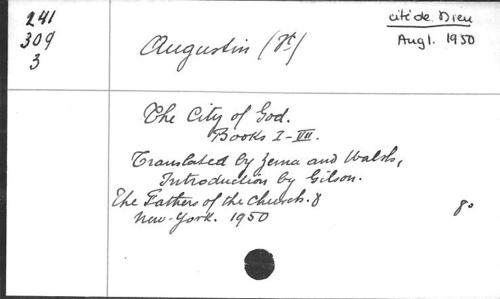 241
309
3
Augustin (St)
cité de Dieu
Augl. 1950
The City of God.
Books I-VII.
Translated by Zema and Walsh,
Introduction by Gilson.
The Fathers of the Church. 8
New-York. 1950
8°